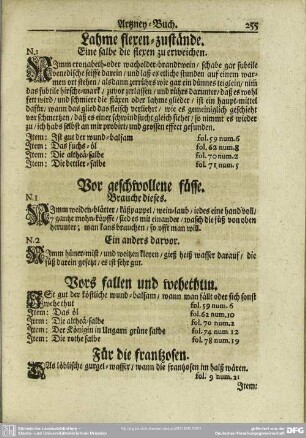 Artzney-Buch. 255
Lahme flexen-zustände.
Eine salbe die flexen zu erweichen.
N.1
Nimm cronabeth-oder wacholder-brandwein / schabe gar subtile
venedische seiffe darein / und laß es etliche stunden auf einem war-
men ort stehen / alsdann zerrührs wie gar ein dünnes teiglein / nim̃
das subtile hirsche-marck / zuvor zerlassen / und rührs darunter / daß es wohl
fert wird / und schmier die flexen oder lahme glieder / ist ein haupt-mittel
darfür. wann das glied das fleisch verliehret / wie es gemeiniglich geschicht
vor schmertzen / daß es einer schwindsucht gleich siehet / so nim̃t es wieder
zu / ich habs selbst an mir probirt / und grossen effect gefunden.
Item: Ist gut der wund-balsam fol. 59 num. 6
Item: Das fuchs-öl fol. 62 num. 8
Item: Die altheä-salbe fol. 70 num. 2
Item: Die bettler-salbe fol. 71 num. 5
Vor geschwollene füsse.
Brauche dieses.
N.1
Nimm weiden-blätter / käßpappel / wein-laub / iedes eine handvoll /
gantze mohn-köpffe / sied es mit einander / wasch die füß von oben
herunter; man kans brauchen / so offt man will.
N.2 Ein anders darvor.
Nimm hüner-mist / und weitzen kleyen / gieß heiß wasser darauf / die
füß darein gesetzt / es ist sehr gut.
Vors fallen und wehethun.
Ist gut der köstliche wund-balsam / wann man fällt oder sich sonst
wehe thut fol. 59 num. 6
Item: Das öl fol. 62 num. 10
Item: Die altheä-salbe fol. 70 num. 2
Item: Der Königin in Ungarn grüne salbe fol. 74 num. 12
Item: Die rothe salbe fol. 78 num. 19
Für die frantzosen.
Das löbliche gurgel-wasser / wann die frantzosen im halß wären.
fol. 9 num. 21
Item: